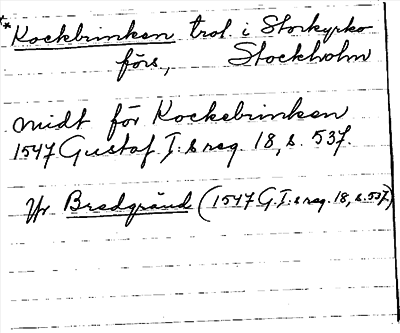 * Kockbrinken trol. i Storkyrko
förs, Stockholm
midt för Kockebrinken
1547 Gustaf I:s reg. 18, s. 537.
Jfr Bredgränd (1547 G. I:s reg. 18, s. 537)